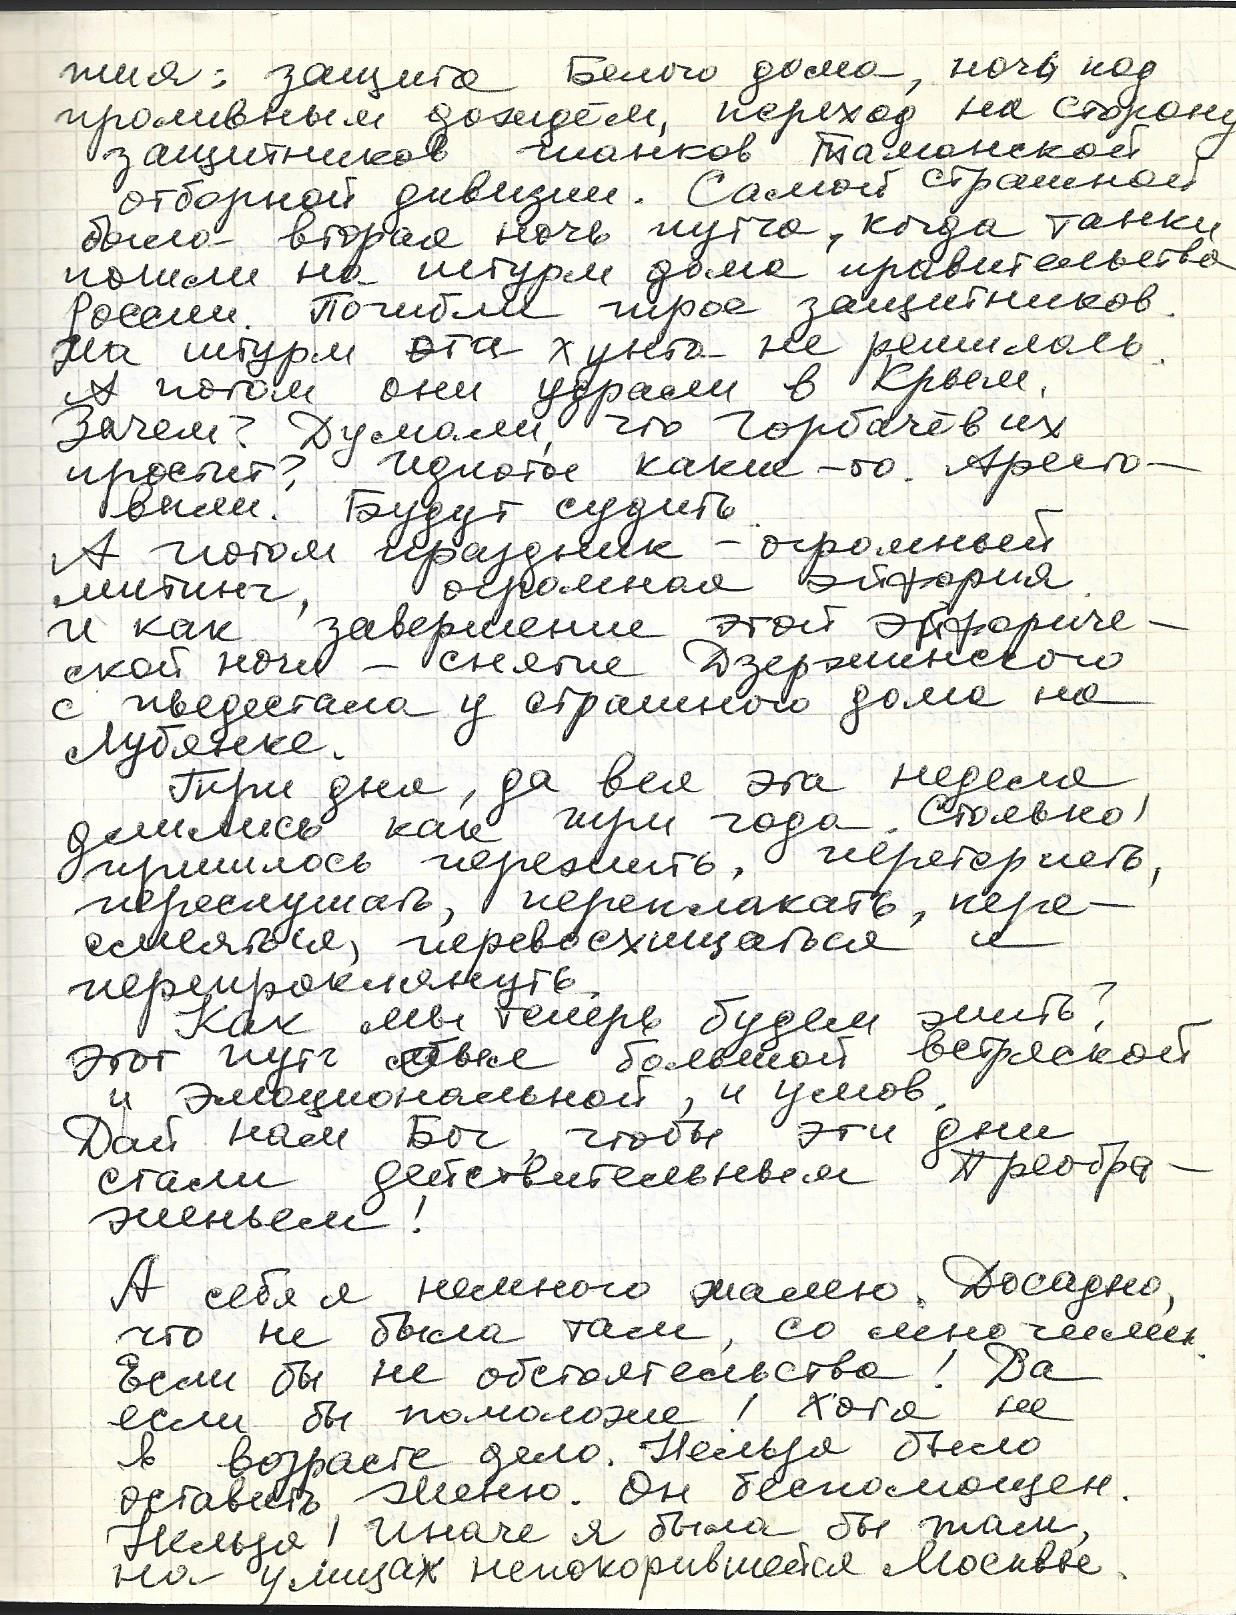 тия: защита Белого дома, ночь под
проливным дождём, переход на сторону
защитников танков Таманской
отборной дивизии. Самой страшной
была вторая ночь путча, когда танки
пошли на штурм дома правительства
России. Погибли трое защитников.
На штурм эта хунта не решилась.
А потом они удрали в Крым.
Зачем? Думали, что Горбачёв их
простит? Идиоты какие-то. Аресто-
вали. Будут судить.
А потом праздник – огромный
митинг, огромная эйфория
и как завершение этой эйфориче-
ской ночи – снятие Дзержинского
с пьедестала у страшного дома на
Лубянке.
Три дня, да вся эта неделя
длились как три года. Столько
пришлось пережить, перетерпеть,
переслушать, переплакать, пере-
смеяться, перевосхищаться и
перепроклянуть.
Как мы теперь будем жить?
Этот путч был большой встряской
и эмоциональной, и умов.
Дай нам Бог, чтобы эти дни
стали действительным Преобра-
женьем!
А себя я немного жалею. Досадно,
что не была там, со многими.
Если бы не обстоятельства! Да
если бы помоложе! Хотя не
в возрасте дело. Нельзя было
оставить Женю. Он беспомощен.
Нельзя! Иначе я была бы там,
на улицах непокорившейся Москвы.